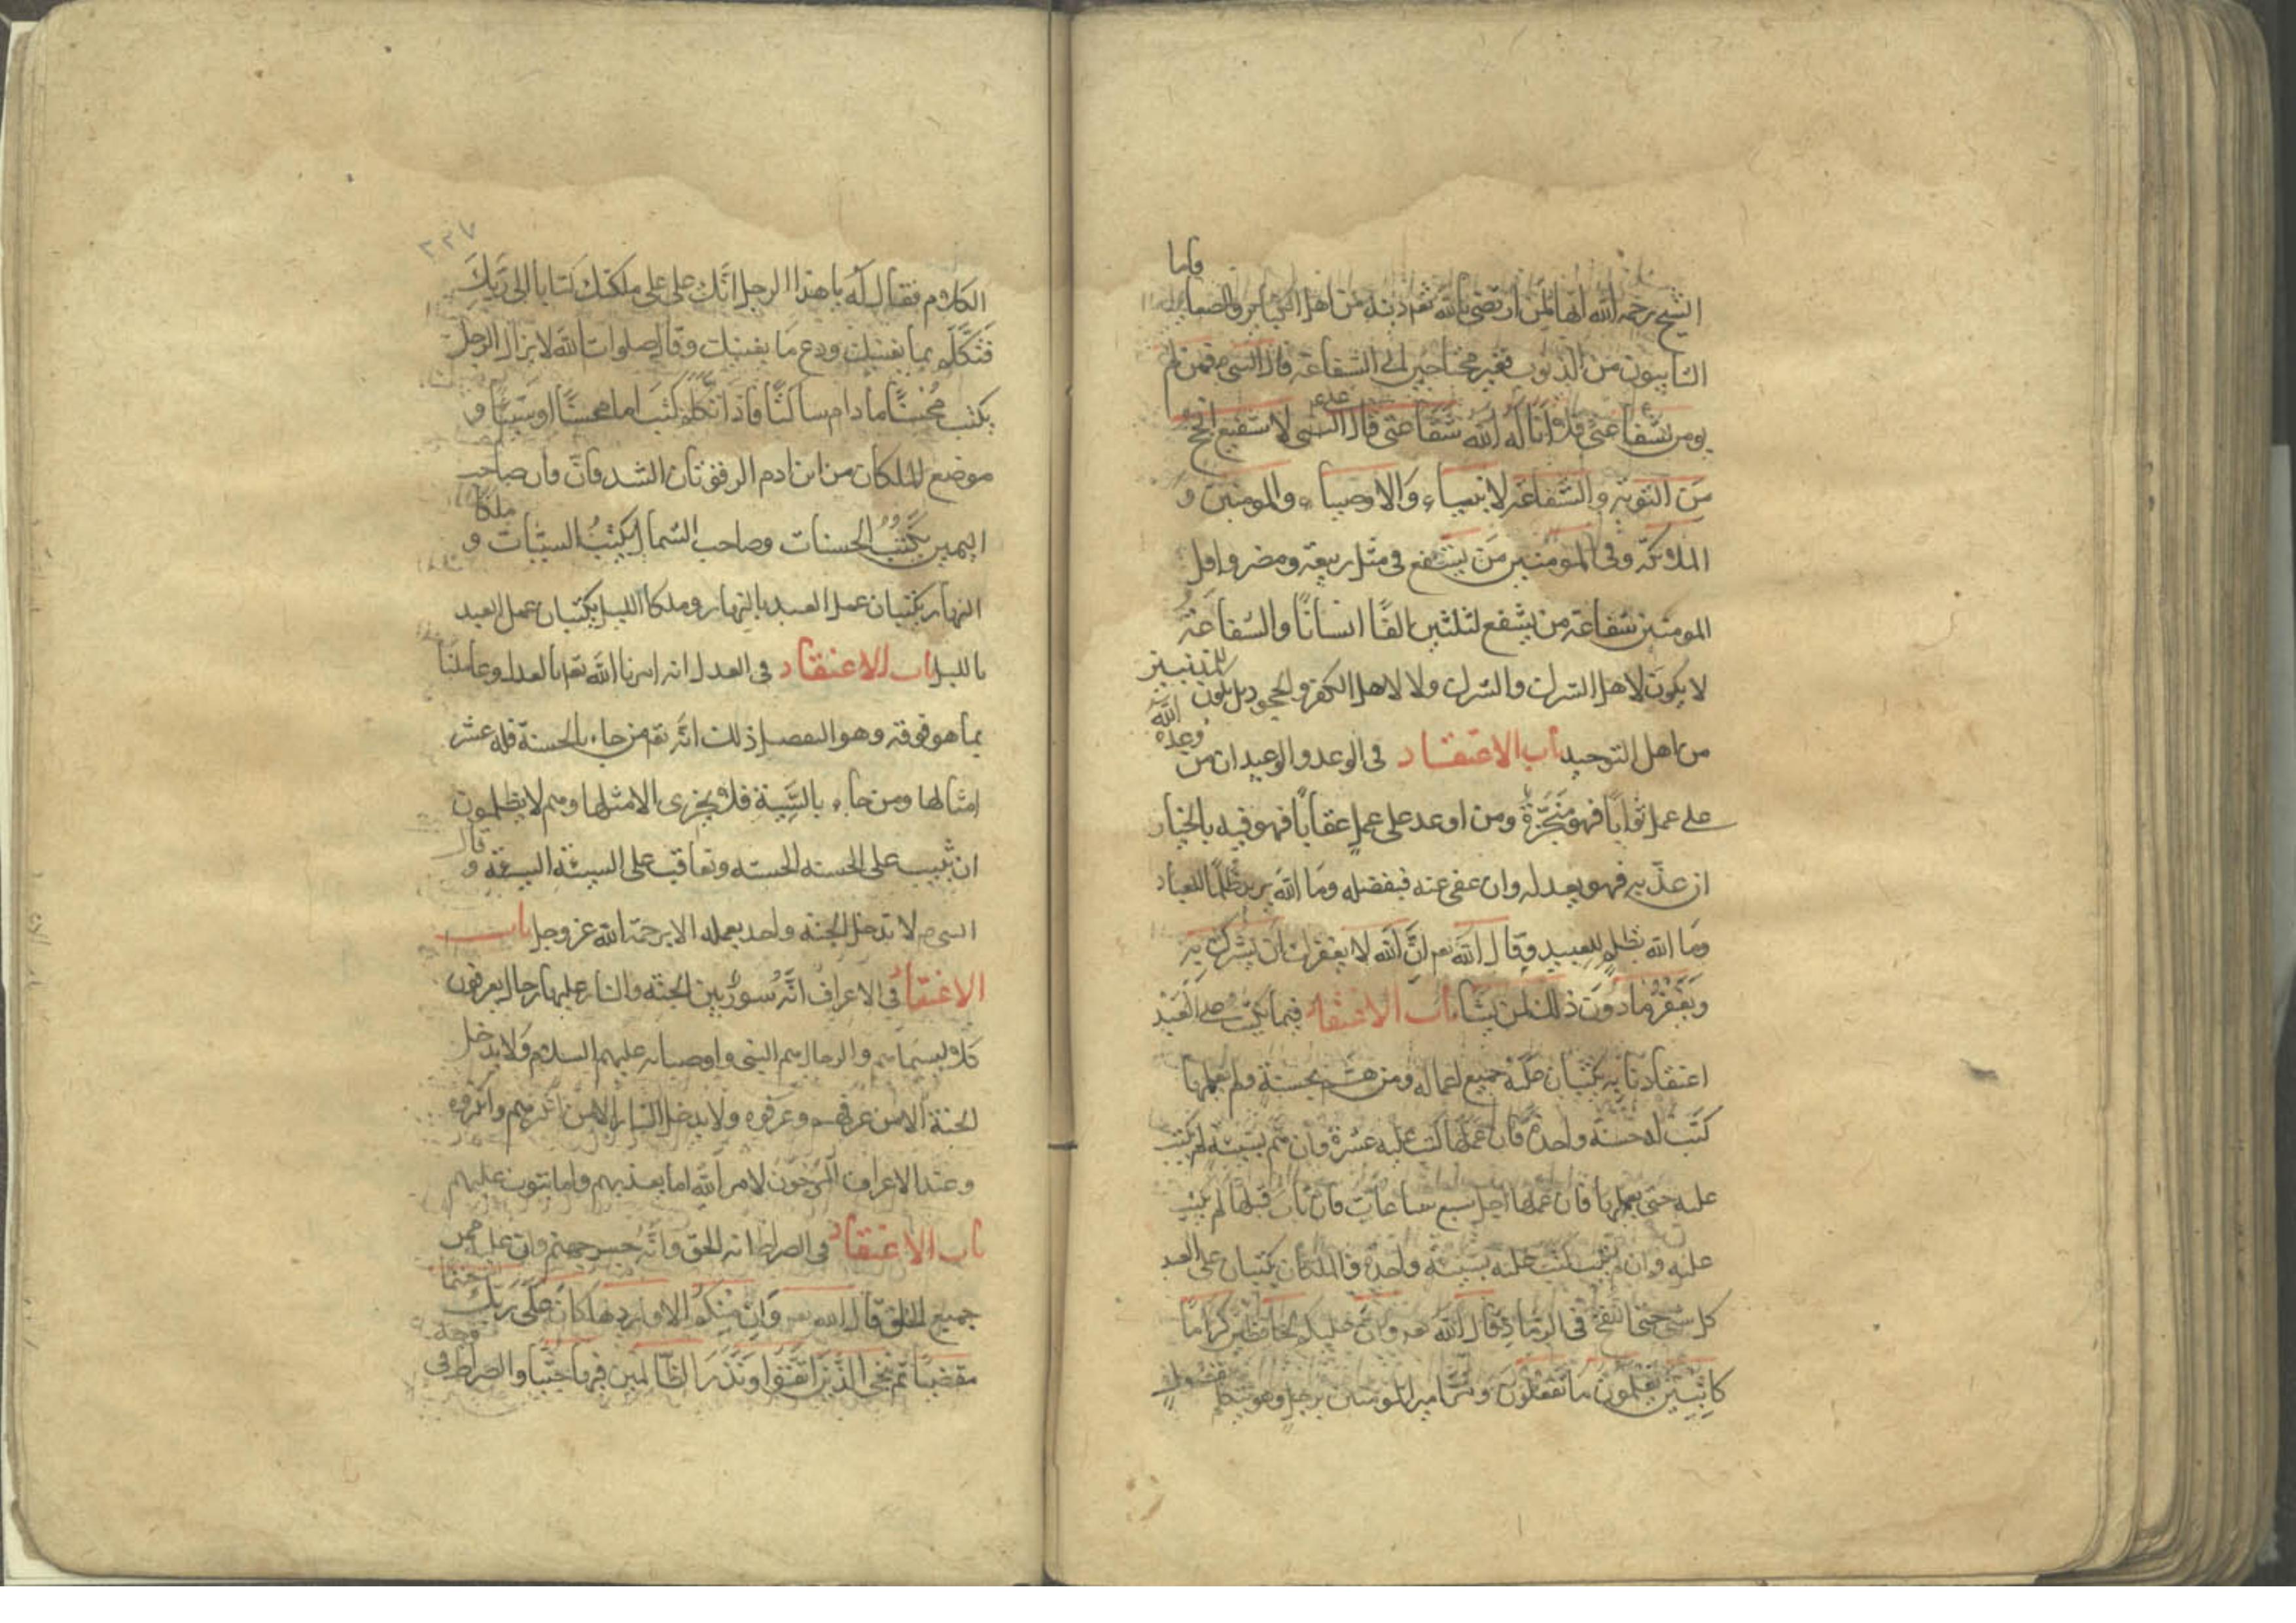 الشيخ رحمه الله انها لمن ارتضى الله تعم دينه من اهل الكباير والصغاير واما
التايبون من الذنوب فغير محتاجين الى الشفاعة قال النبى ص من لم
يومن بشفاعتى فلا اناله الله شفاعتى قال النبى لا شفيع انجح
من التوبة والشفاعة لانبياء والاوصياء والمومنين و
الملائكة وفى المومنين من يشفع فى مثل ربيعة ومضر واقل
المومنين شفاعة من يشفع لثلثين الفا انسانا والشفاعة
لا يكون لاهل الشرك والشرك ولا لاهل الكفر والجحود بل يكون للمذنبين
من اهل التوحيد باب الاعتقاد فى الوعد والوعيد ان من وعده الله
على عمل ثوابا فهو منجزة ومن اوعد على عمل عقابا فهو فيه بالخيار
ان عذبه فهو بعدله وان عفى عنه فبفضله وما الله يريد ظلما للعباد
وما الله بظلم للعبيد وقال الله تعم ان الله لا يغفر ان يشرك به
ويغفر ما دون ذلك لمن يشاء باب الاعتقاد فيما يكتب على العبد
اعتقادنا به يكتبان عليه جميع اعماله ومن هم بحسنة ولم يعملها
كتب له حسنة واحدة فان عملها كتب عليه عشرة وان هم بسيئة لم يكتب
عليه حتى يعملها فان عملها اجل سبع ساعات فان تاب قبلها لم يكتب
عليه وان لم يتب كتب عليه بسيئة واحدة والملكان يكتبان على العبد
كل شى حتى النفخ فى الرماد قال الله تعم وان عليكم لحافظين كراما
كاتبين يعلمون ما تفعلون ومر امير المومنين برجل وهو يتكلم بفضول
٢٢٧
الكلام فقال له يا هذا الرجل انك على على ملكتك كتابا الى ربك
فتكلم بما يعنيك ودع ما يعنيك وقال صلوات الله لا يزال الرجل
يكتب محسنا ما دام ساكتا فاذا تكلم كتب اما محسنا او سيئا و
موضع الملكان من ابن ادم الرفوتان الشدفان وان صاحب
اليمين يكتب الحسنات وصاحب الشمال يكتب السيئات و ملكا
النهار يكتبان عمل العبد بالنهار وملكا الليل يكتبان عمل العبد
بالليل باب الاعتقاد فى العدل انه امرنا الله تعم بالعدل وعاملنا
بما هو فوقه وهو التفضل ذلك انه تعم من جاء بالحسنة فله عشر
امثالها ومن جاء بالسيئة فلا يجزى الا مثلها وهم لا يظلمون
ان يثيب على الحسنه الحسنه وتعاقب على السيئة السيئة و قال
النبى ص لا تدخل الجنة واحد بعمله الا برحمة الله عز وجل باب
الاعتقاد فى الاعراف انه سور بين الجنة والنار عليها رجال يعرفون
كلا بسيماهم والرجال هم النبى واوصيائه عليهم السلام ولا يدخل
الجنة الا من عرفهم وعرفوه ولا يدخل النار الا من انكرهم وانكروه
وعند الاعراف المرجون لامر الله اما يعذبهم واما يتوب عليهم
باب الاعتقاد فى الصراط انه الحق وانه جسر جهنم وان عليه ممر
جميع الخلق قال الله تعم وان منكم الا واردها كان على ربك حتما
مقضيا ثم ننجى الذين اتقوا ونذر الظالمين فيها جثيا والصراط فى وجه